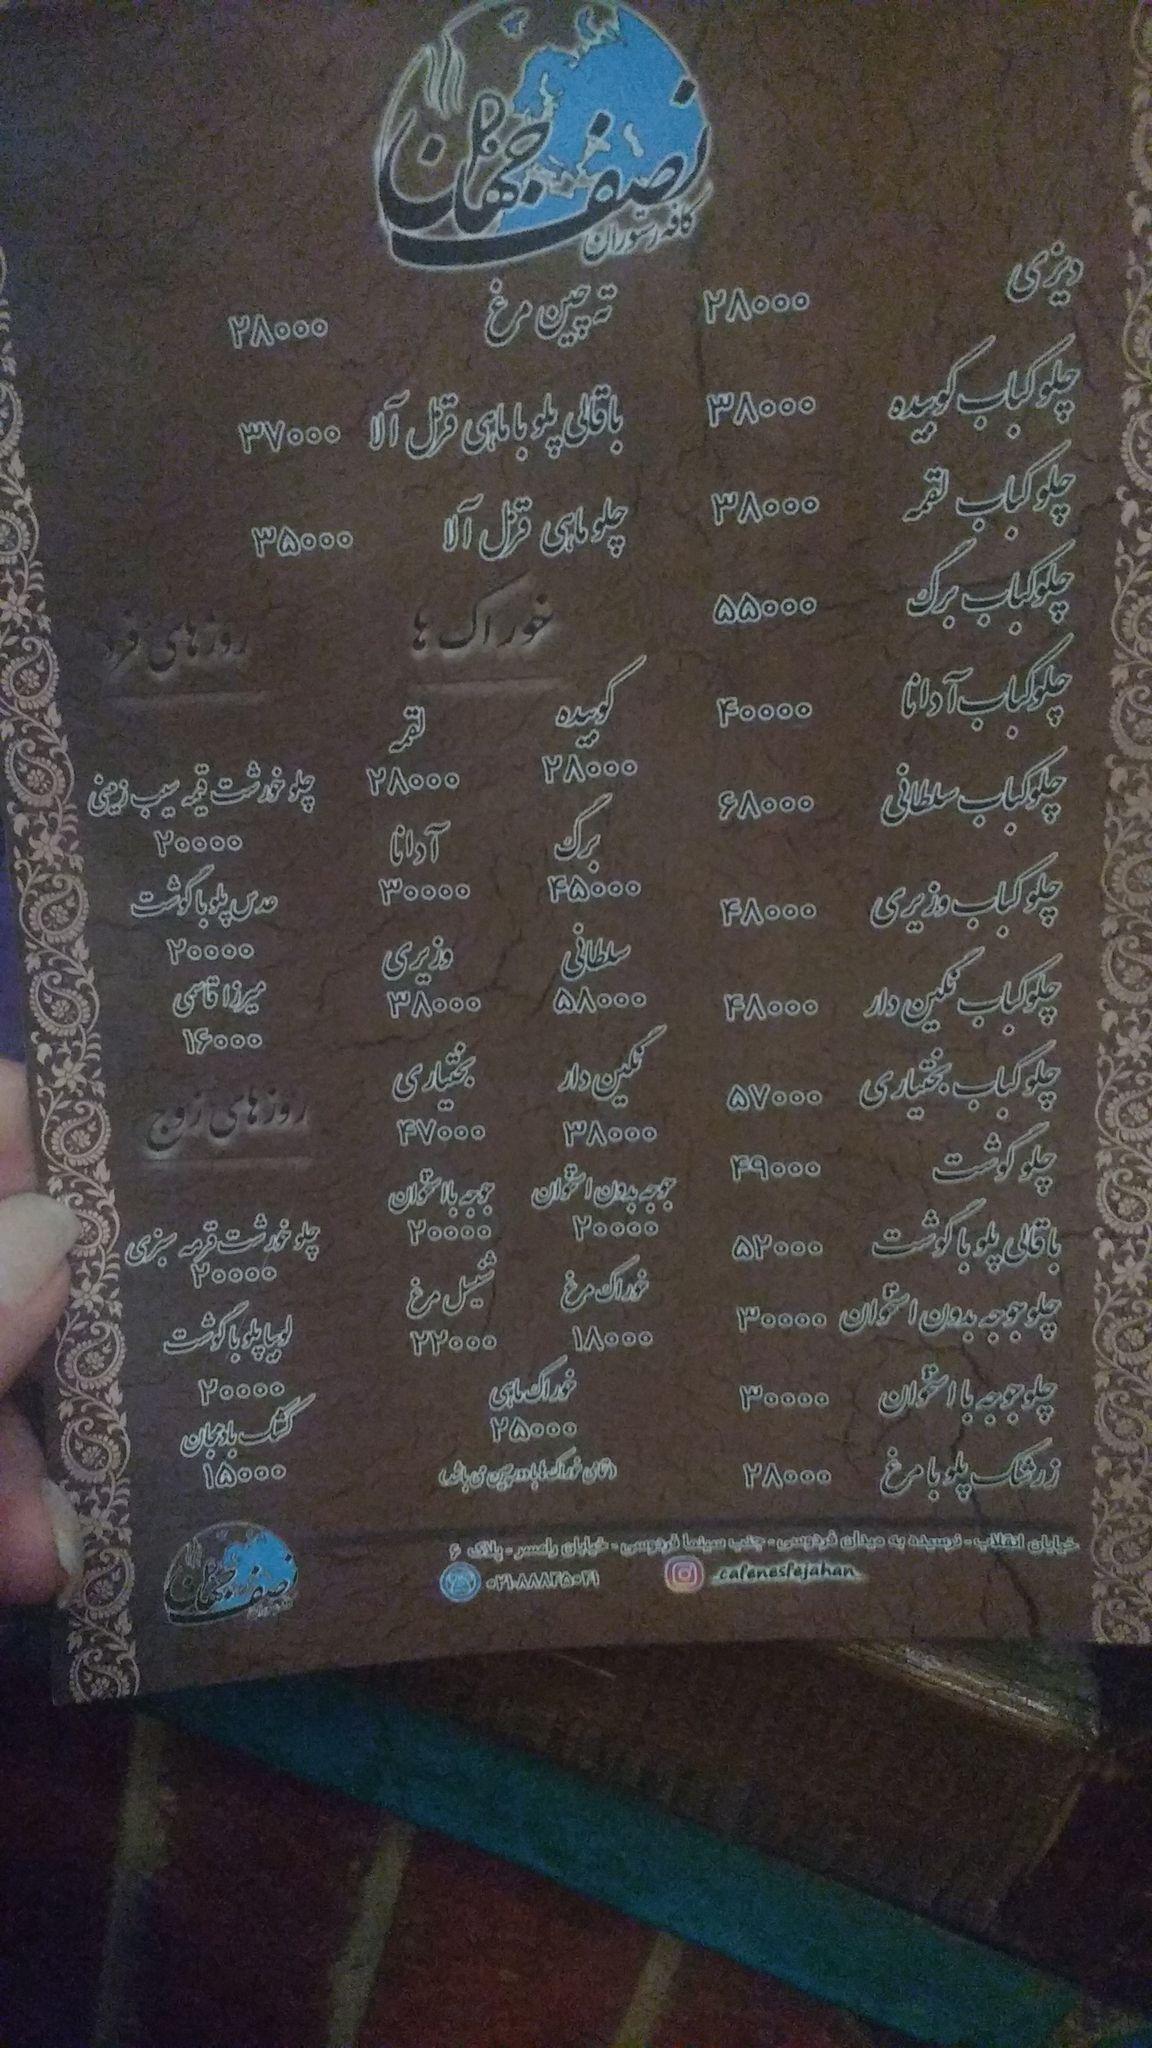 نصف جهان
کافه رستوران
دیزی ۲۸۰۰۰
چلوکباب کوبیده ۳۸۰۰۰
چلوکباب لقمه ۳۸۰۰۰
چلوکباب برگ ۵۵۰۰۰
چلوکباب آدانا ۴۰۰۰۰
چلوکباب سلطانی ۶۸۰۰۰
چلوکباب وزیری ۴۸۰۰۰
چلوکباب نگین دار ۴۸۰۰۰
چلوکباب بختیاری ۵۷۰۰۰
چلو گوشت ۴۹۰۰۰
باقالی پلو با گوشت ۵۲۰۰۰
چلو جوجه بدون استخوان ۳۰۰۰۰
چلو جوجه با استخوان ۳۰۰۰۰
زرشک پلو با مرغ ۲۸۰۰۰
ته چین مرغ ۲۸۰۰۰
باقالی پلو با ماهی قزل آلا ۳۷۰۰۰
چلو ماهی قزل آلا ۳۵۰۰۰
خوراک ها
کوبیده لقمه
۲۸۰۰۰ ۲۸۰۰۰
برگ آدانا
۴۵۰۰۰ ۳۰۰۰۰
سلطانی وزیری
۵۸۰۰۰ ۳۸۰۰۰
نگین دار بختیاری
۳۸۰۰۰ ۴۷۰۰۰
جوجه بدون استخوان جوجه با استخوان
۲۰۰۰۰ ۲۰۰۰۰
خوراک مرغ شنیسل مرغ
۱۸۰۰۰ ۲۲۰۰۰
خوراک ماهی
۲۵۰۰۰
(تمامی خوراک ها با دورچین می باشد)
روزهای فرد
چلو خورشت قیمه سیب زمینی
۲۰۰۰۰
عدس پلو با گوشت
۲۰۰۰۰
میرزا قاسمی
۱۶۰۰۰
روزهای زوج
چلو خورشت قرمه سبزی
۲۰۰۰۰
لوبیا پلو با گوشت
۲۰۰۰۰
کشک بادمجان
۱۵۰۰۰
خیابان انقلاب - نرسیده به میدان فردوسی - جنب سینما فردوسی - خیابان رامسر - پلاک ۶
cafenesfejahan
۰۲۱-۸۸۸۴۵۰۲۱
نصف جهان